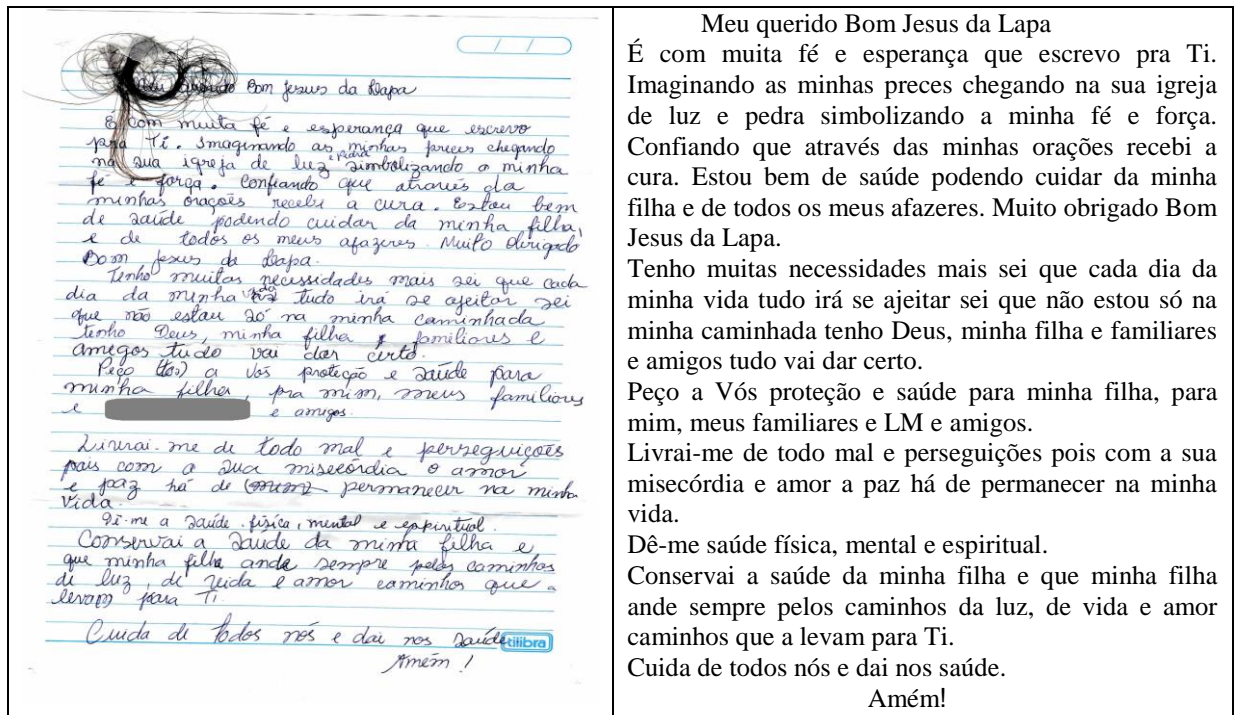 / /
querido Bom Jesus da Lapa
É com muita fé e esperança que escrevo
pra Ti. Imaginando as minhas preces chegando
na sua igreja de luz e pedra simbolizando a minha
fé e força. Confiando que através da
minhas orações recebi a cura. Estou bem
de saúde podendo cuidar da minha filha,
e de todos os meus afazeres. Muito obrigado
Bom Jesus da Lapa.
Tenho muitas necessidades mais sei que cada
dia da minha vida tudo irá se ajeitar sei
que não estou só na minha caminhada
tenho Deus, minha filha e familiares e
amigos tudo vai dar certo.
Peço a Vós proteção e saúde para
minha filha, pra mim, meus familiares
e e amigos.
Livrai-me de todo mal e perseguições
pois com a sua misecórdia o amor
e paz há de permanecer na minha
vida.
Dê-me a saúde física, mental e espiritual.
Conservai a saúde da minha filha e,
que minha filha ande sempre pelos caminhos
de luz, de vida e amor caminhos que a
levam para Ti.
Cuida de todos nós e dai nos saúde
tilibra
Amém!
Meu querido Bom Jesus da Lapa
É com muita fé e esperança que escrevo pra Ti.
Imaginando as minhas preces chegando na sua igreja
de luz e pedra simbolizando a minha fé e força.
Confiando que através das minhas orações recebi a
cura. Estou bem de saúde podendo cuidar da minha
filha e de todos os meus afazeres. Muito obrigado Bom
Jesus da Lapa.
Tenho muitas necessidades mais sei que cada dia da
minha vida tudo irá se ajeitar sei que não estou só na
minha caminhada tenho Deus, minha filha e familiares
e amigos tudo vai dar certo.
Peço a Vós proteção e saúde para minha filha, para
mim, meus familiares e LM e amigos.
Livrai-me de todo mal e perseguições pois com a sua
misecórdia e amor a paz há de permanecer na minha
vida.
Dê-me saúde física, mental e espiritual.
Conservai a saúde da minha filha e que minha filha
ande sempre pelos caminhos da luz, de vida e amor
caminhos que a levam para Ti.
Cuida de todos nós e dai nos saúde.
Amém!